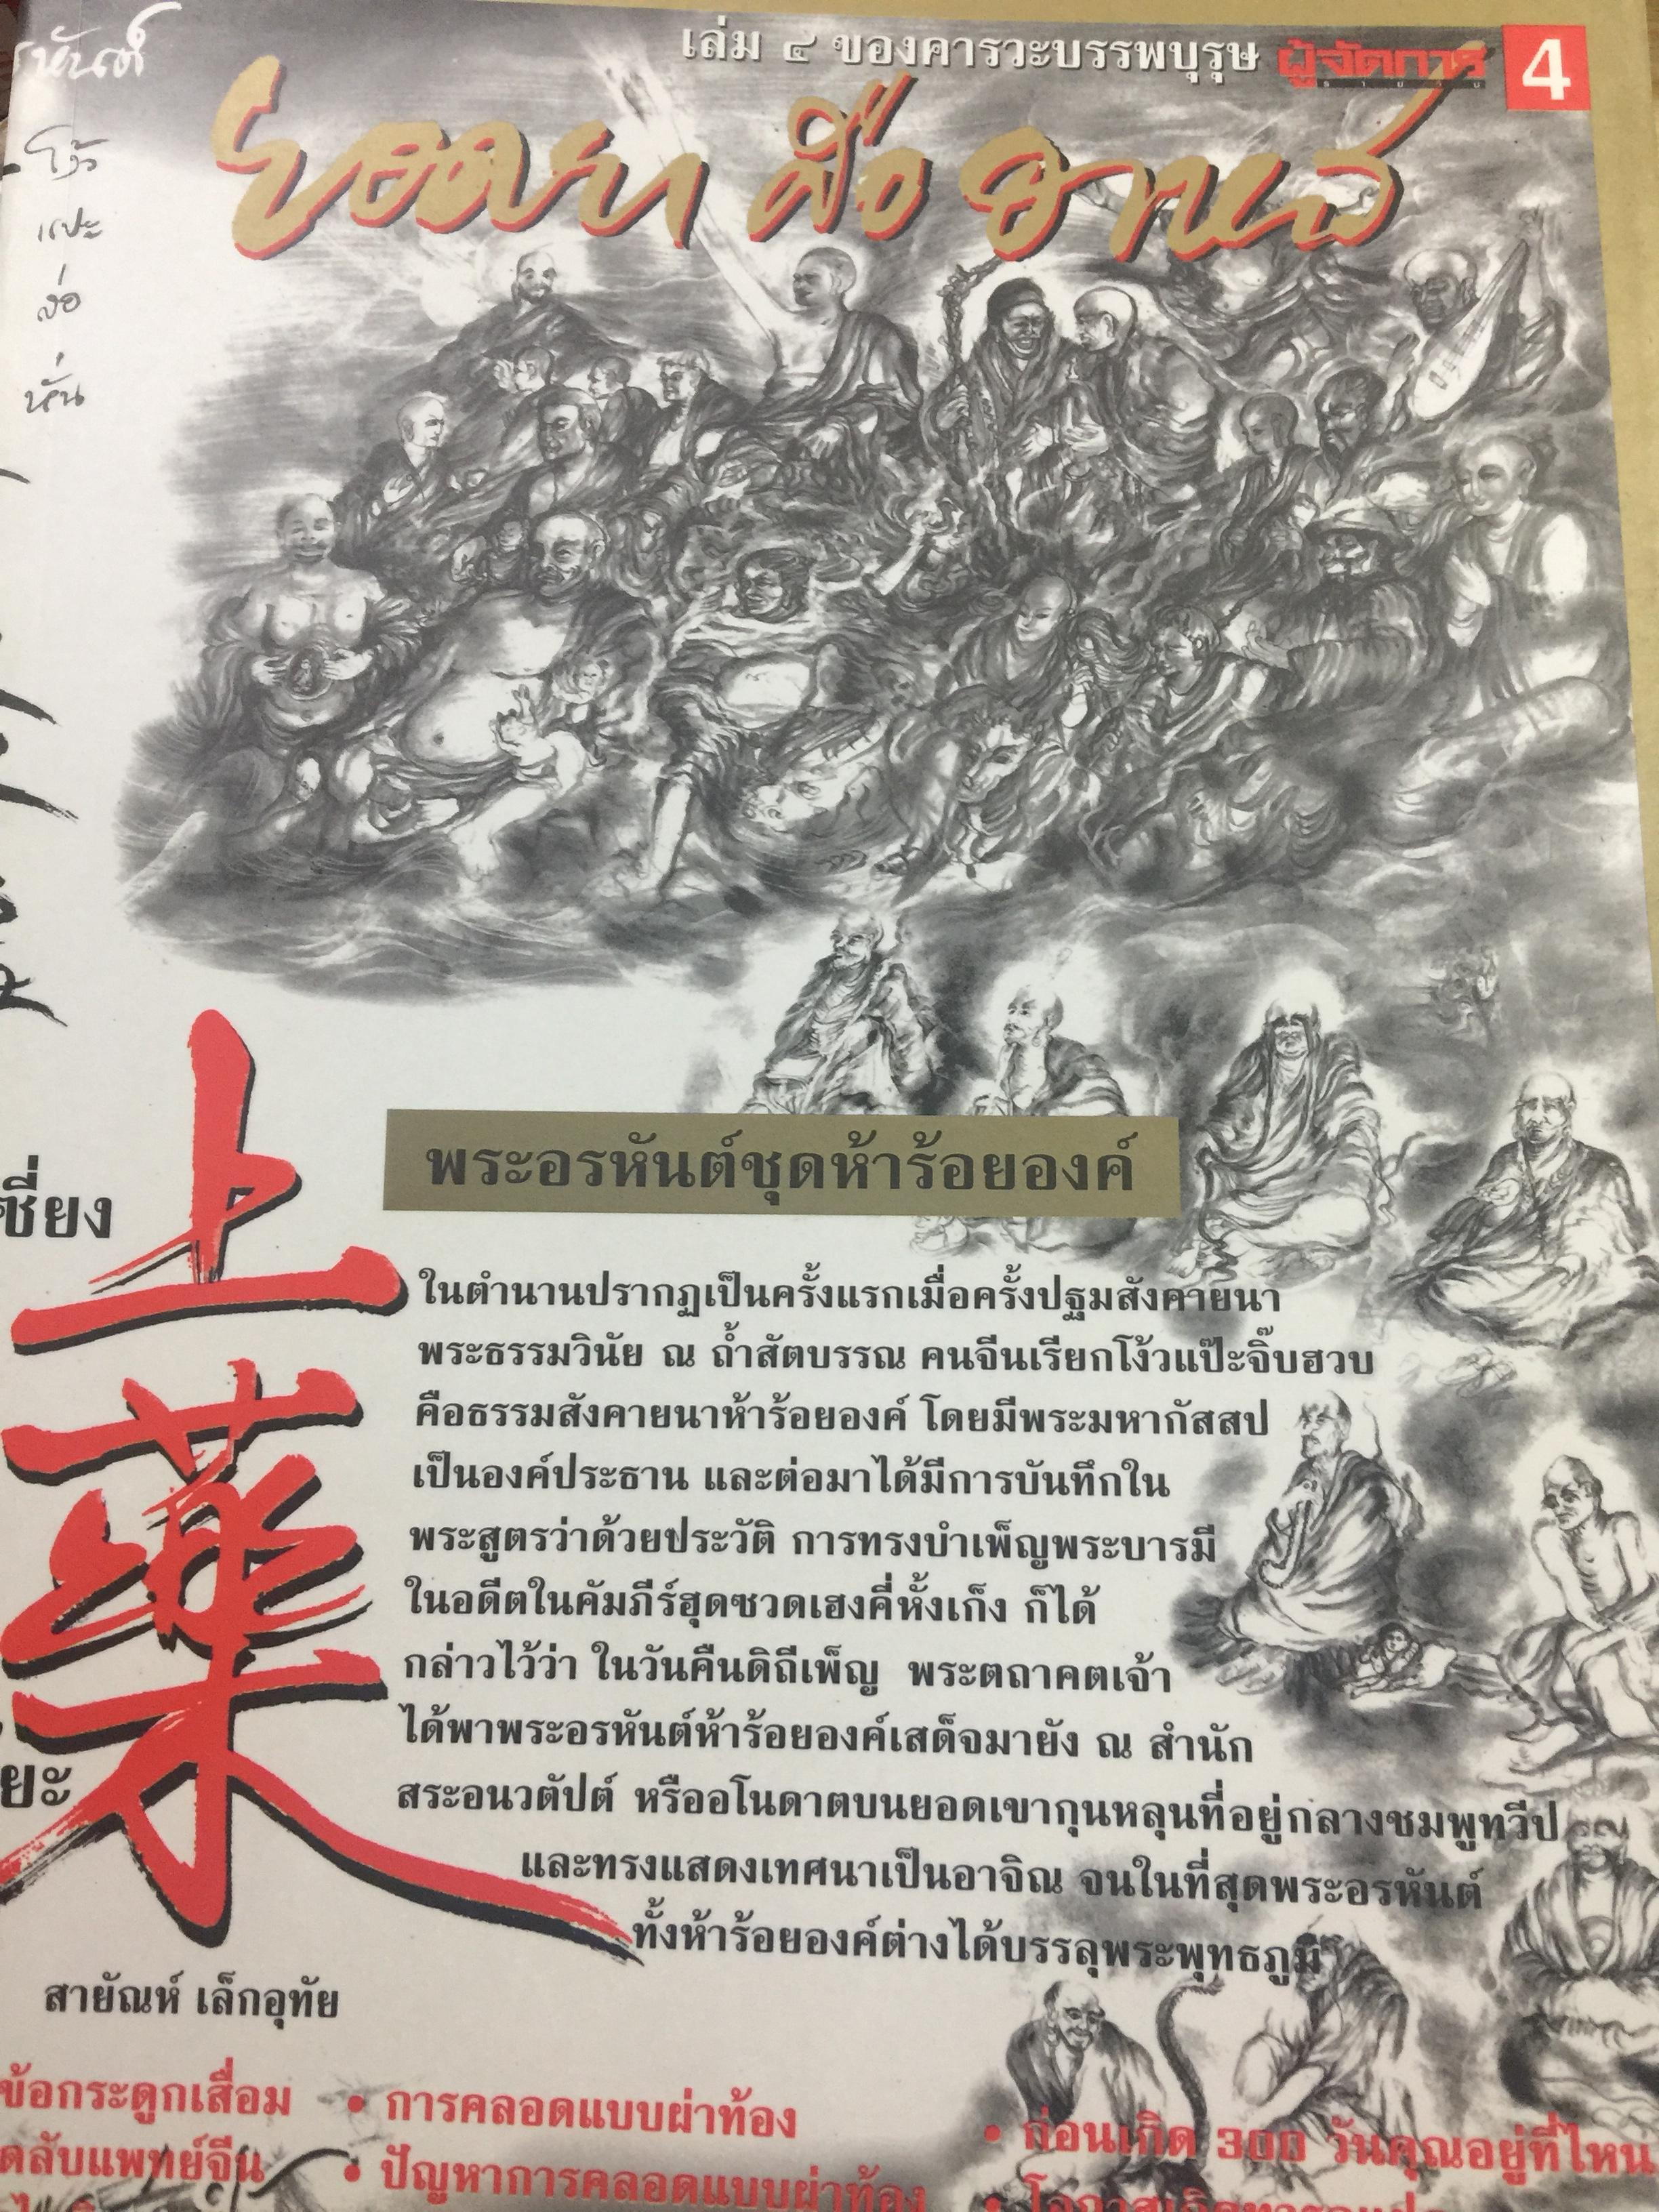 เล่ม ๔ ของคารวะบรรพบุรุษ ผู้จัดการ 4
รายเดือน
หันต์
ยอดยา คือ อาหาร
โง้ว
แปะ
ล่อ
หั่น
上
藥
ซี่ยง
ยะ
พระอรหันต์ชุดห้าร้อยองค์
ในตำนานปรากฏเป็นครั้งแรกเมื่อครั้งปฐมสังคายนา
พระธรรมวินัย ณ ถ้ำสัตบรรณ คนจีนเรียกโง้วแป๊ะจิ๊บฮวบ
คือธรรมสังคายนาห้าร้อยองค์ โดยมีพระมหากัสสป
เป็นองค์ประธาน และต่อมาได้มีการบันทึกใน
พระสูตรว่าด้วยประวัติ การทรงบำเพ็ญพระบารมี
ในอดีตในคัมภีร์ฮุดซวดเฮงคี่หั้งเก็ง ก็ได้
กล่าวไว้ว่า ในวันคืนดิถีเพ็ญ พระตถาคตเจ้า
ได้พาพระอรหันต์ห้าร้อยองค์เสด็จมายัง ณ สำนัก
สระอนวตัปต์ หรืออโนดาตบนยอดเขากุนหลุนที่อยู่กลางชมพูทวีป
และทรงแสดงเทศนาเป็นอาจิณ จนในที่สุดพระอรหันต์
ทั้งห้าร้อยองค์ต่างได้บรรลุพระพุทธภูมิ
สายัณห์ เล็กอุทัย
ข้อกระดูกเสื่อม
ดลับแพทย์จีน
• การคลอดแบบผ่าท้อง
• ปัญหาการคลอดแบบผ่าท้อง
• ก่อนเกิด 300 วันคุณอยู่ที่ไหน